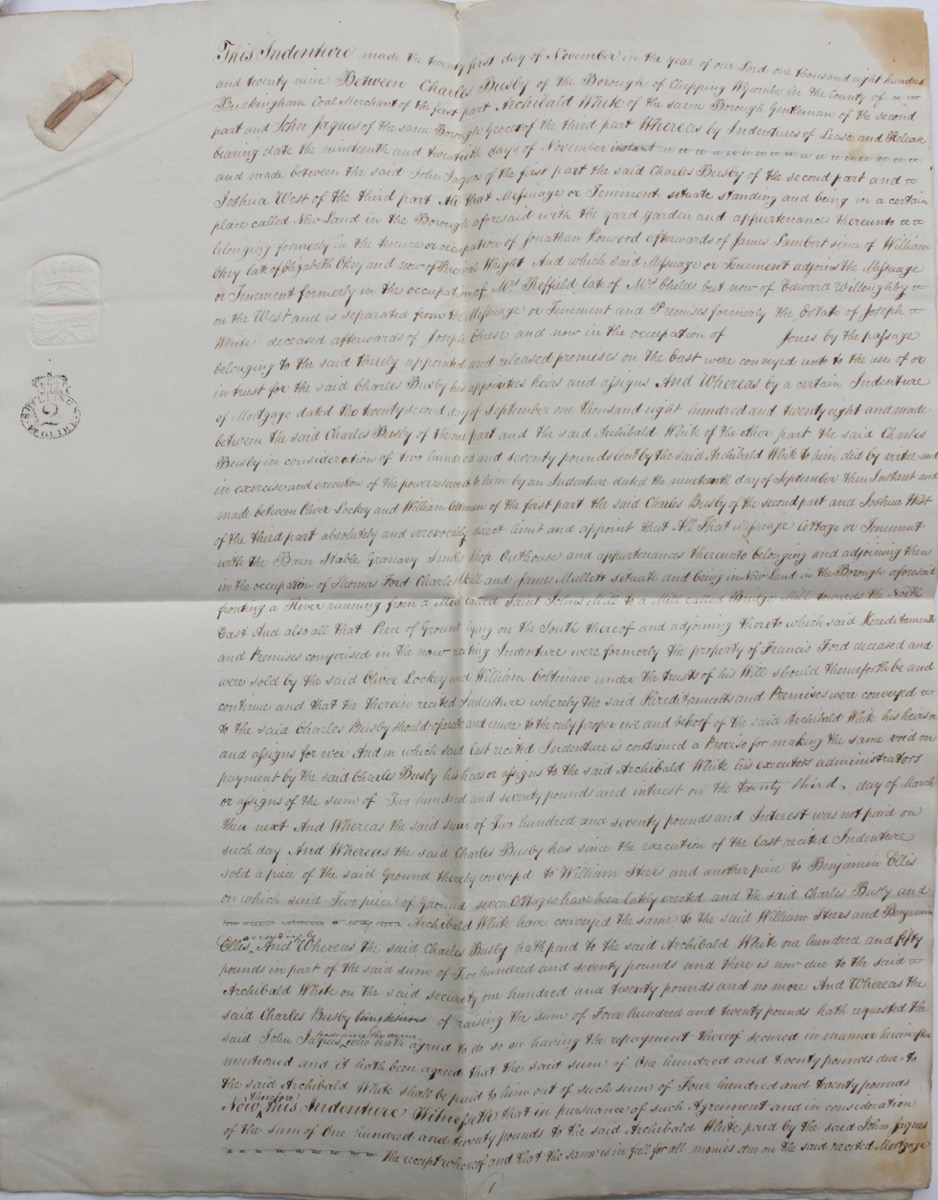 This Indenture made the twenty first day of November in the year of our Lord one thousand eight hundred
and twenty nine Between Charles Busby of the Borough of Chepping Wycombe in the County of
Buckingham Coal Merchant of the first part Archibald White of the same Borough Gentleman of the second
part and John Jaques of the same Borough Grocer of the third part Whereas by Indentures of Lease and Release
bearing date the nineteenth and twentieth days of November instant
and made between the said John Jaques of the first part the said Charles Busby of the second part and
Joshua West of the third part All that Messuage or Tenement situate standing and being in a certain
place called New Land in the Borough aforesaid with the yard garden and appurtenances thereunto
belonging formerly in the tenure or occupation of Jonathan Norwood afterwards of James Lambert since of William
Okey late of Elizabeth Okey and now of Percival Wright And which said Messuage or Tenement adjoins the Messuage
or Tenement formerly in the occupation of Mrs Sheffield late of Mrs Childs but now of Edward Willoughby
on the West and is separated from the Messuage or Tenement and Premises formerly the Estate of Joseph
White deceased afterwards of Joseph and now in the occupation of Jones by the passage
belonging to the said thereby appointed and released premises on the East were conveyed unto to the use of or
in trust for the said Charles Busby his appointees heirs and assigns And Whereas by a certain Indenture
of Mortgage dated the twenty second day of September one thousand eight hundred and twenty eight and made
between the said Charles Busby of the one part and the said Archibald White of the other part the said Charles
Busby in consideration of two hundred and seventy pounds lent by the said Archibald White to him did by virtue and
in exercise and execution of the power reserved to him by an Indenture dated the nineteenth day of September then Instant and
made between Oliver Lockey and William Coltman of the first part the said Charles Busby of the second part and Joshua West
of the third part absolutely and irrevocably direct limit and appoint that All That Messuage Cottage or Tenement
with the Barn Stable Granary Smiths Shop Outhouse and appurtenances thereunto belonging and adjoining then
in the occupation of Thomas Ford Charles and James Mullett situate and being in New Land in the Borough aforesaid
fronting a River running from a Mill called Saint Johns Mill to a Mill called Bridge Mill towards the North
East And also all that Piece of Ground lying on the South thereof and adjoining thereto which said Hereditaments
and Premises comprised in the now reciting Indenture were formerly the property of Francis Ford deceased and
were sold by the said Oliver Lockey and William Coltman under the trusts of his Will should thenceforth be and
continue and that the therein recited Indenture whereby the said Hereditaments and Premises were conveyed
to the said Charles Busby should operate and inure to the only proper use and behoof of the said Archibald White his heirs
and assigns for ever And in which said last recited Indenture is contained a Proviso for making the same void on
payment by the said Charles Busby his heirs or assigns to the said Archibald White his executors administrators
or assigns of the sum of Two hundred and seventy pounds and interest on the twenty third day of March
then next And Whereas the said sum of Two hundred and seventy pounds and Interest was not paid on
such day And Whereas the said Charles Busby has since the execution of the last recited Indenture
sold a piece of the said Ground thereby conveyed to William Steers and another piece to Benjamin Ellis
on which said Two piece of Ground seven Cottages have been lately erected and the said Charles Busby and
Archibald White have conveyed the same to the said William Steers and Benjamin
accordingly
Ellis And Whereas the said Charles Busby hath paid to the said Archibald White one hundred and fifty
pounds in part of the said sum of Two hundred and seventy pounds and there is now due to the said
Archibald White on the said security one hundred and twenty pounds and no more And Whereas the
said Charles Busby being desirous of raising the sum of Four hundred and twenty pounds hath requested the
said John Jaques who have agreed to do so on having the repayment thereof secured in manner herein after
mentioned and it hath been agreed that the said sum of One hundred and twenty pounds due to
the said Archibald White shall be paid to him out of such sum of Four hundred and twenty pounds
therefore
Now this Indenture Witnesseth that in pursuance of such Agreement and in consideration
of the sum of One hundred and twenty pounds to the said Archibald White paid by the said John Jaques
the receipt whereof and that the same is in full for all monies due on the said recited Mortgage
1
SHILLINGS
2